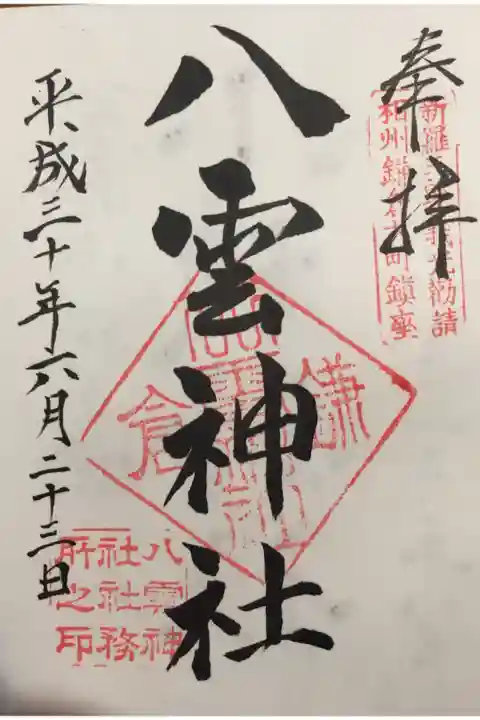 奉拝
新羅三郎義光勧請
相州鎌倉大町鎮座
八雲神社
鎌倉
八雲神社
平成三十年六月二十三日
八雲神
社社務
所之印